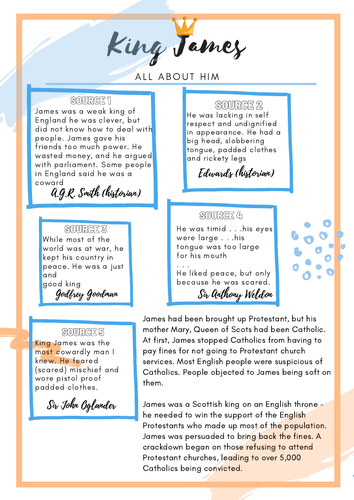 King James
ALL ABOUT HIM
SOURCE 1
James was a weak king of
England he was clever, but
did not know how to deal with
people. James gave his
friends too much power. He
wasted money, and he argued
with parliament. Some people
in England said he was a
coward
A.G.R. Smith (historian)
SOURCE 2
He was lacking in self
respect and undignified
in appearance. He had a
big head, slobbering
tongue, padded clothes
and rickety legs
Edwards (historian)
SOURCE 3
While most of the
world was at war, he
kept his country in
peace. He was a just
and
good king
Godfrey Goodman
SOURCE 4
He was timid . . .his eyes
were large . . .his
tongue was too large
for his mouth
. . .
He liked peace, but only
because he was scared.
Sir Anthony Weldon
SOURCE 5
King James was the
most cowardly man I
knew. He feared
(scared) mischief and
wore pistol proof
padded clothes.
Sir John Oglander
James had been brought up Protestant, but his
mother Mary, Queen of Scots had been Catholic.
At first, James stopped Catholics from having to
pay fines for not going to Protestant church
services. Most English people were suspicious of
Catholics. People objected to James being soft on
them.
James was a Scottish king on an English throne –
he needed to win the support of the English
Protestants who made up most of the population.
James was persuaded to bring back the fines. A
crackdown began on those refusing to attend
Protestant churches, leading to over 5,000
Catholics being convicted.